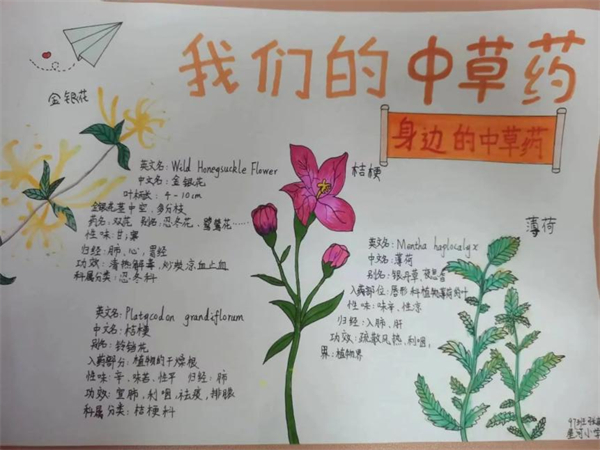 我们的中草药
身边的中草药
金银花
英文名: Wild Honeysuckle Flower
中文名: 金银花
叶柄长: 4-10cm
金银花茎中空,多分枝
药名: 双花 别名: 忍冬花、鹭鸶花…
性味: 甘;寒
归经: 肺、心、胃经
功效: 清热解毒,炒炭凉血止血
科属分类: 忍冬科
桔梗
英文名: Platycodon grandiflorum
中文名: 桔梗
别名: 铃铛花
入药部分: 植物的干燥根
性味: 辛、味苦、性平 归经: 肺
功效: 宣肺,利咽,祛痰,排脓
科属分类: 桔梗科
薄荷
英文名: Mentha haplocalyx
中文名: 薄荷
别名: 银丹草
入药部位: 唇形科植物薄荷的叶
性味: 味辛、性凉
归经: 入肺、肝
功效: 疏散风热,利咽,
界: 植物界